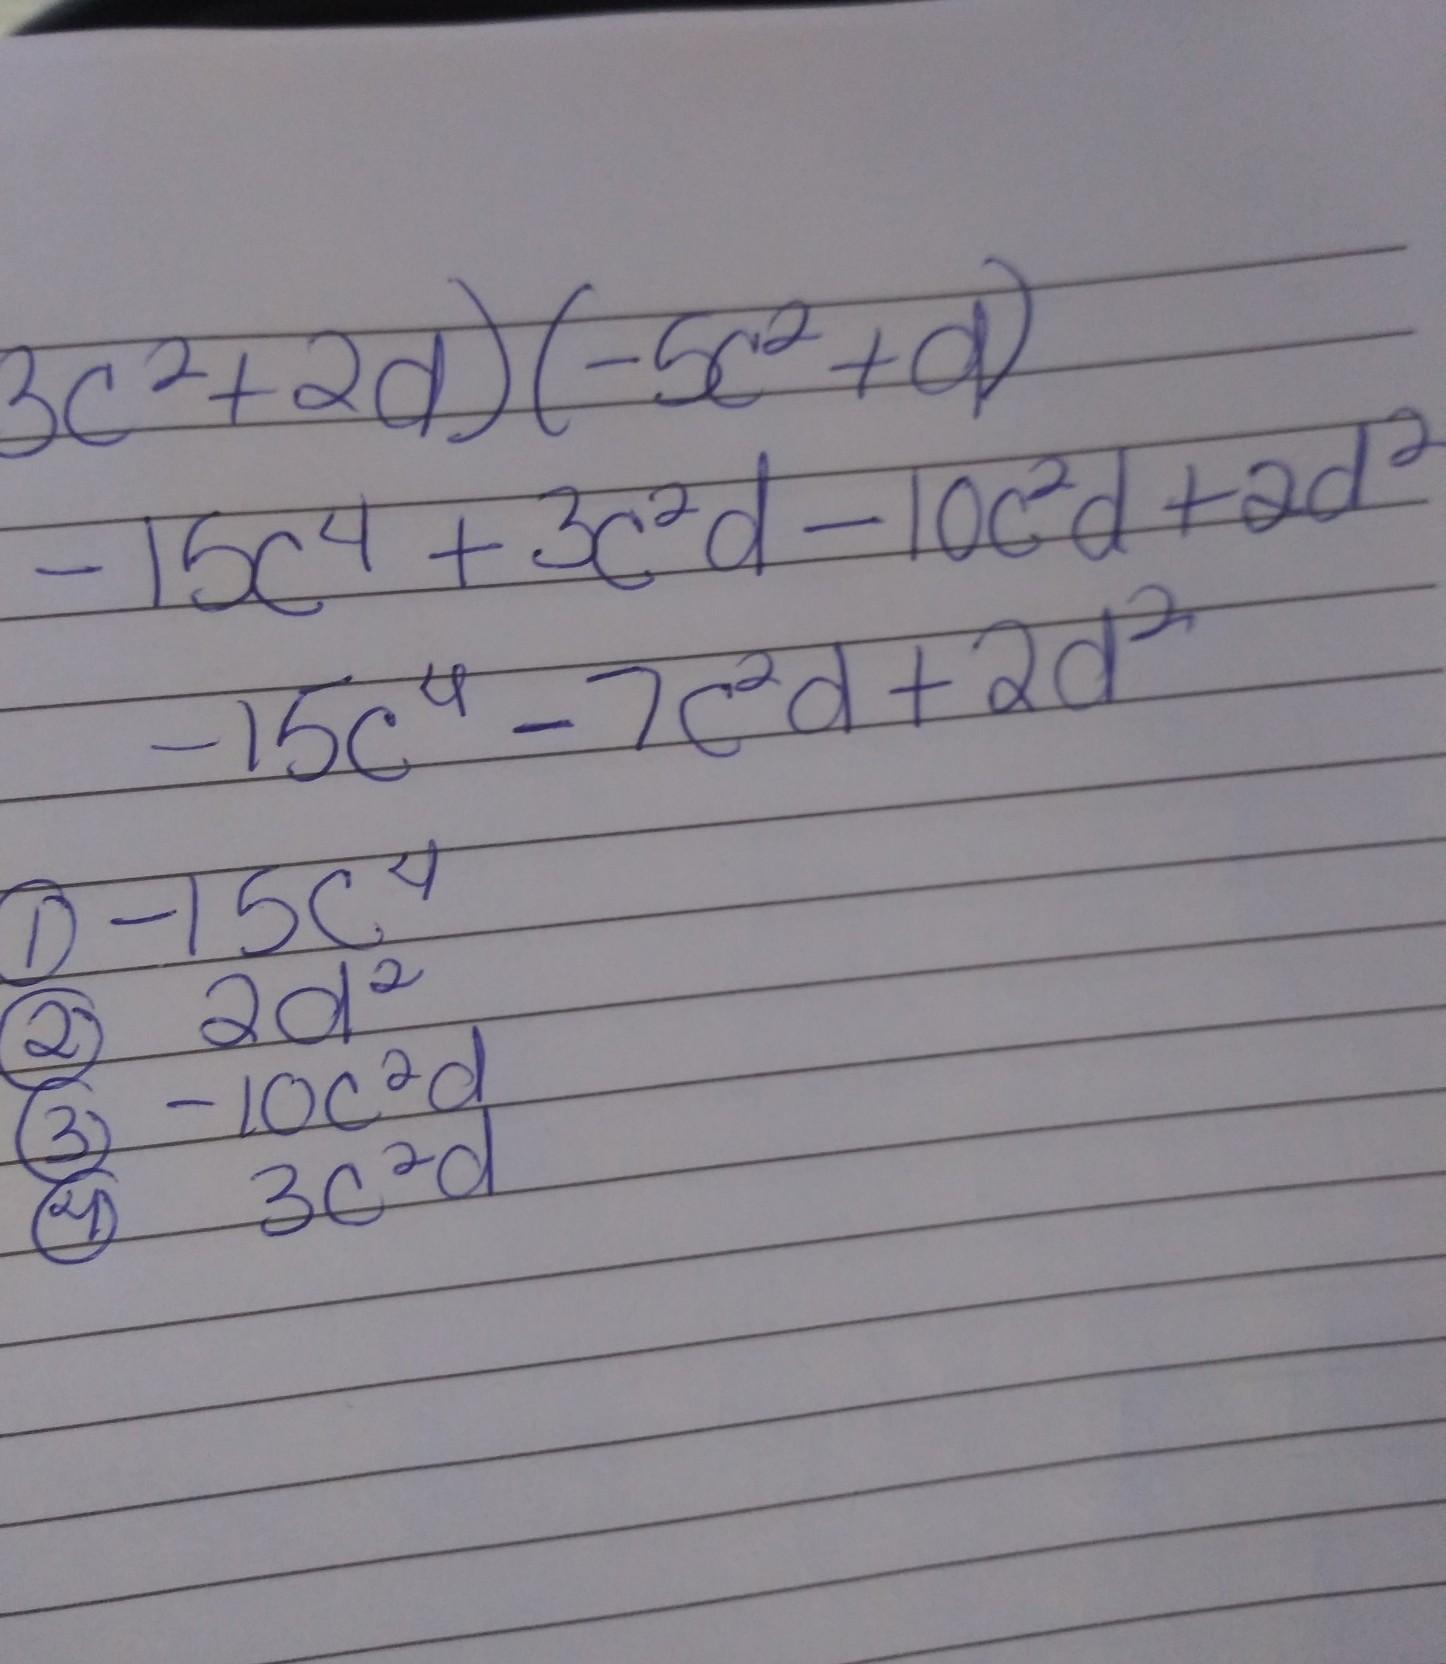 3c²+2d)(-5c²+d)
-15c⁴+3c²d-10c²d+2d²
-15c⁴-7c²d+2d²
① -15c⁴
② 2d²
③ -10c²d
④ 3c²d